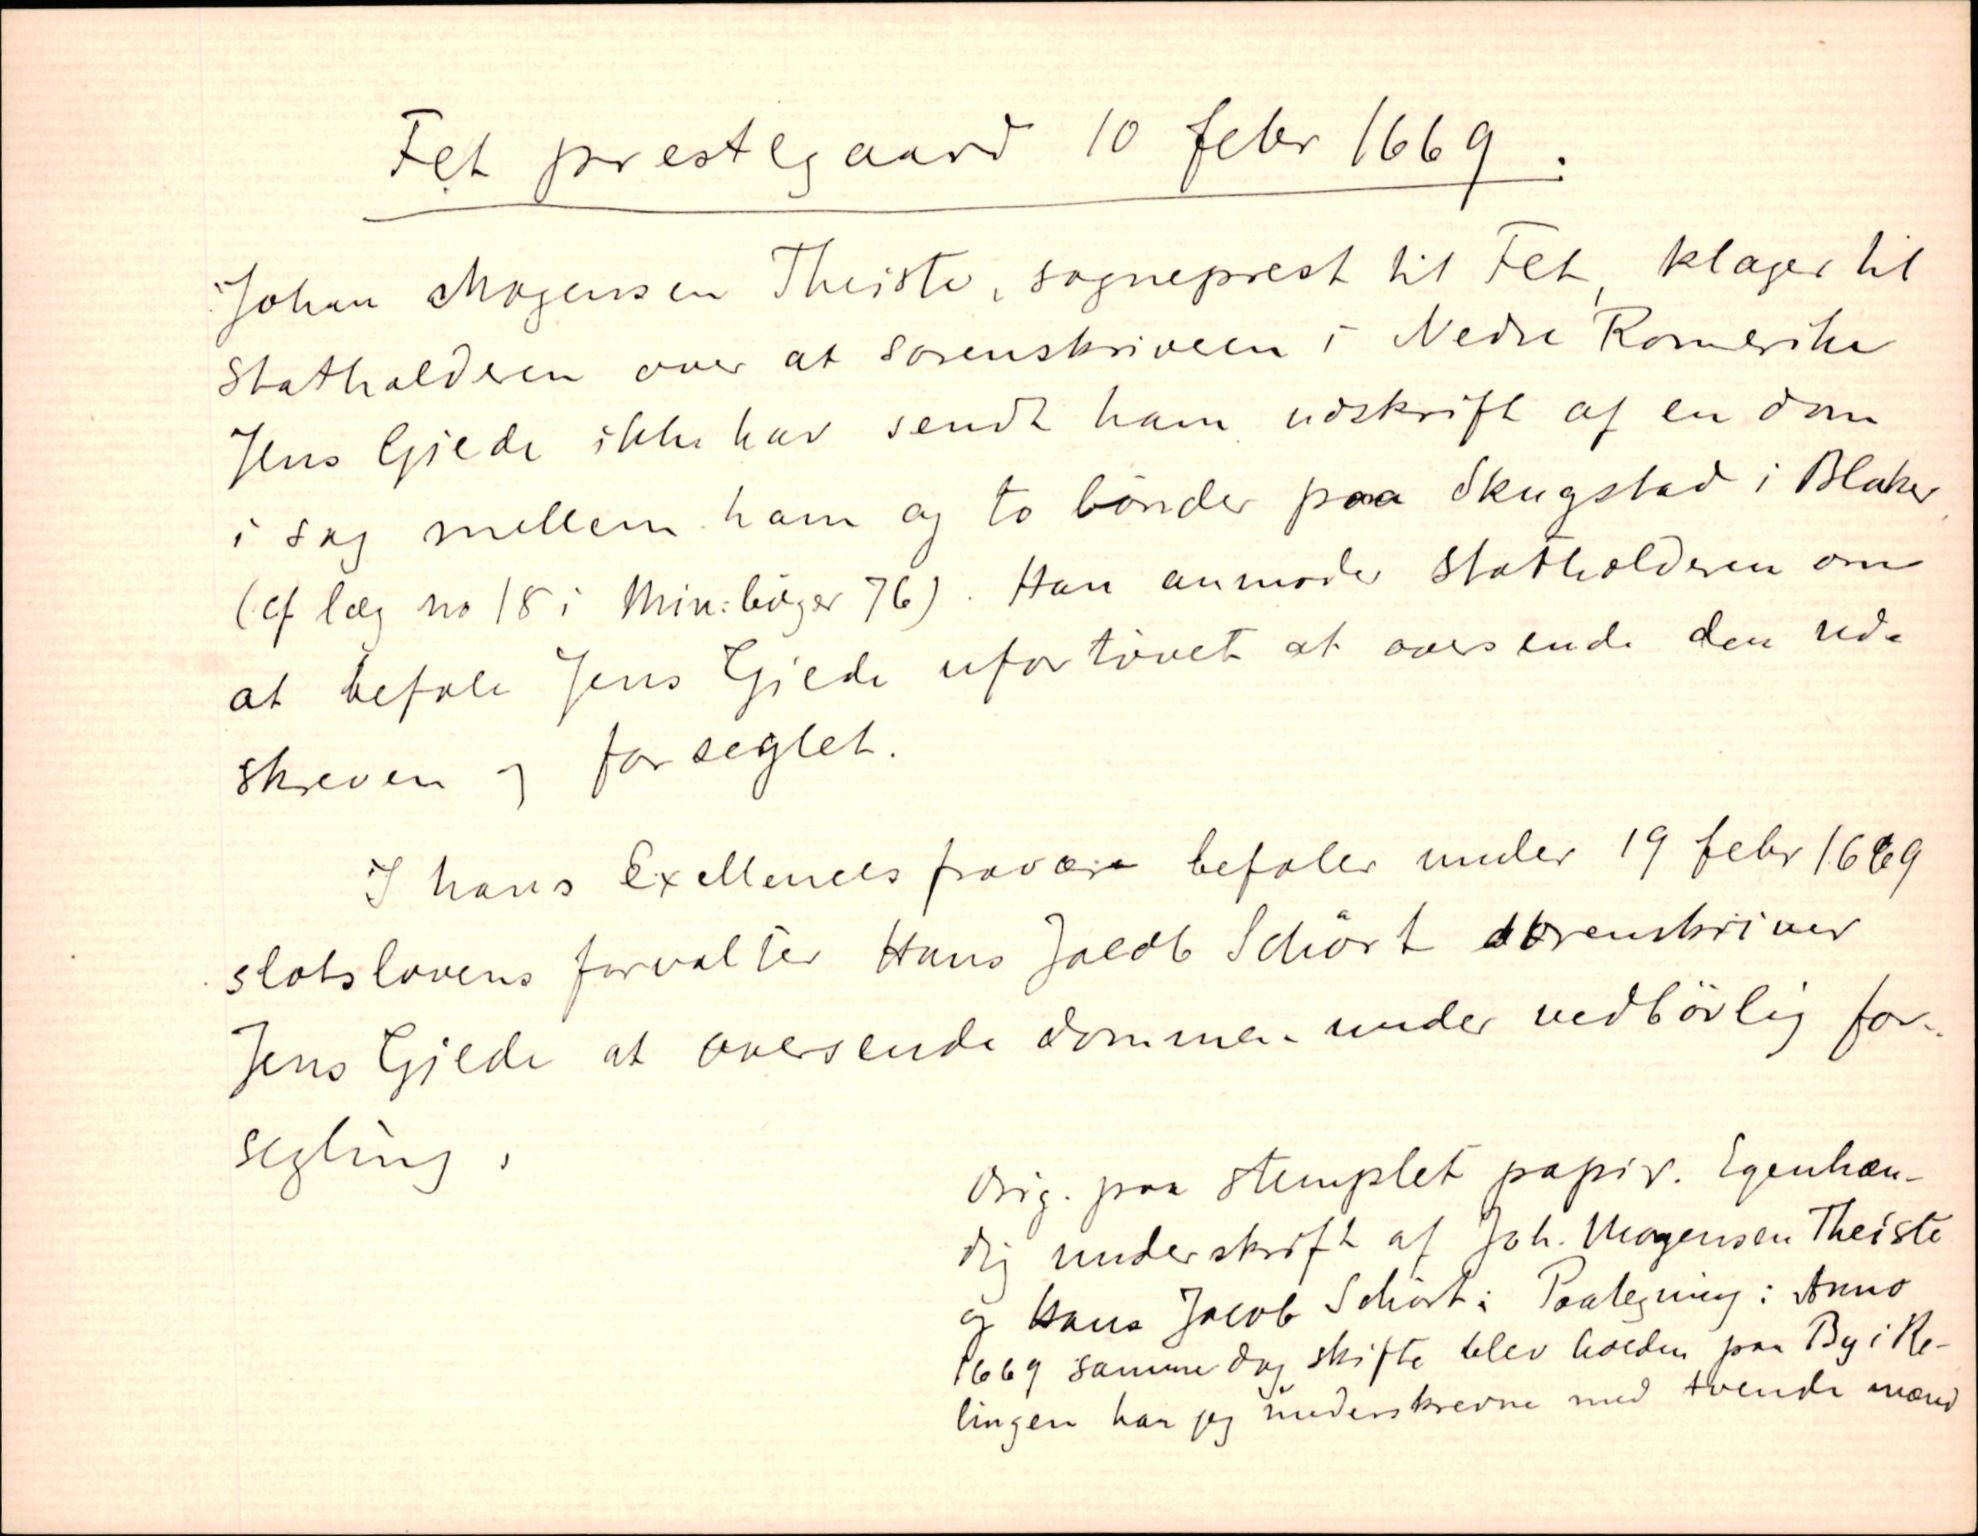 Fet prestegaard 10 febr 1669.
Johan Mogensen Theiste, sogneprest til Fet, klager til
statholderen over at sorenskriveren i Nedre Romerike
Jens Gjede ikke har sendt ham udskrift af en dom
i sag mellem ham og to bönder paa Skugstad i Blaker
(cf læg no 18 i Min:böger 76). Han anmoder statholderen om
at befale Jens Gjede ufortövet at oversende den ud-
skreven og forseglet.
I hans Exellences fravære befaler under 19 febr 1669
slotslovens forvalter Hans Jacob Schört sorenskriver
Jens Gjede at oversende dommen under vedbörlig for-
segling.
Orig. paa stemplet papir. Egenhæn-
dig underskrift af Joh. Mogensen Theiste
og Hans Jacob Schört: Paategning: Anno
1669 samme dag skifte blev holden paa By i Re-
lingen har jeg underskrevne med tvende mænd